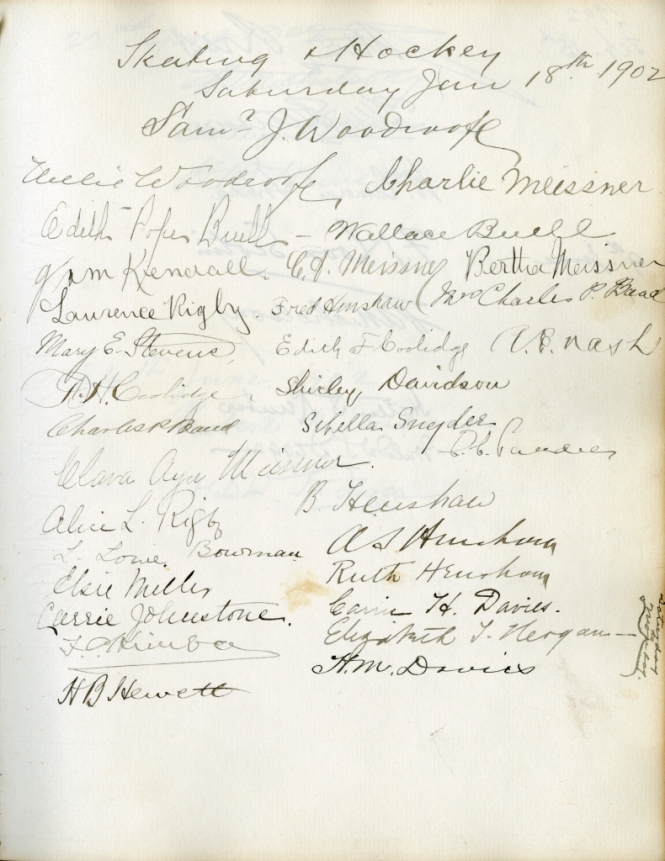 Skating & Hockey
Saturday Jan 18th 1902
Saml J. Woodroofe
Nellie Woodroofe, Charlie Meissner
Edith Buell - Wallace Buell
Kendall. C. J. Meissner Bertha Meissner
Laurence Rigby. Fred Henshaw Mrs Charles P. Baad
Mary E. Stevens, Edith F Coolidge A. B. Nash
A. H. Coolidge, Shirley Davidson
Charles P. Baad Sibella Snyder
Clara Meissner.
B. Henshaw
Alice L. Rigby
L. Lowe Bowman A S Henshaw
Elsie Miller Ruth Henshaw
Carrie Johnstone. Carrie H. Davies.
Elizabeth
H. M. Davies
H B Hewett